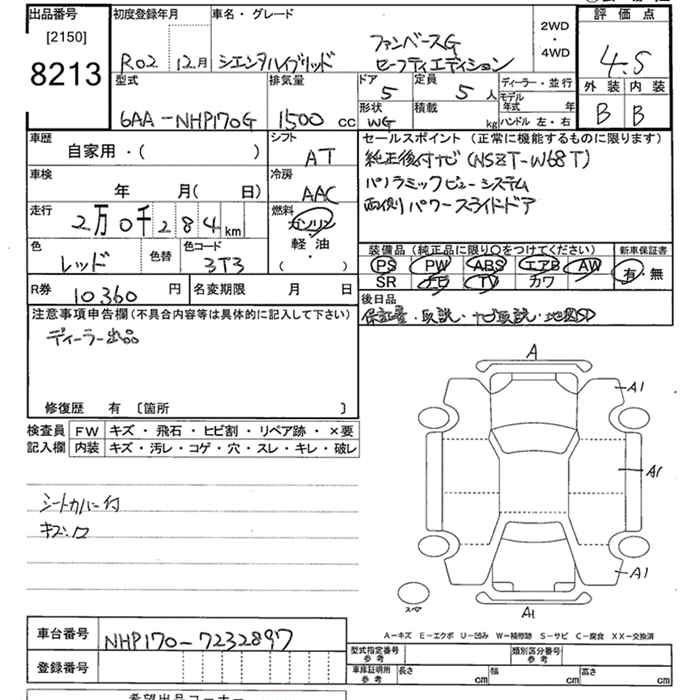 出品番号
[2150]
8213
初度登録年月
R02 12月
車名・グレード
シエンタハイブリッド
ファンベースG
セーフティエディション
2WD
・
4WD
評価点
4.5
外装 内装
B B
型式
6AA-NHP170G
排気量
1500 cc
ドア
5
定員
5 人
形状
WG
積載
kg
ディーラー・並行
モデル年式 年
ハンドル 左・右
車歴
自家用・( )
シフト
AT
車検
年 月( 日)
冷房
AAC
走行
2万0千284km
燃料
ガソリン
・
軽・油
( )
色
レッド
色替
色コード
3T3
R券
10360 円
名変期限 月 日
セールスポイント(正常に機能するものに限ります)
純正後付ナビ(NSZT-W68T)
パノラミックビューシステム
両側パワースライドドア
装備品(純正品に限り○をつけてください)
PS PW ABS エアB AW
SR ナビ TV カワ
新車保証書
有・無
後日品
保証書・取説・ナビ取説・地図SD
注意事項申告欄(不具合内容等は具体的に記入して下さい)
ディーラー出品
修復歴 有 〔箇所 〕
検査員記入欄
FW キズ・飛石・ヒビ割・リペア跡・×要
内装 キズ・汚レ・コゲ・穴・スレ・キレ・破レ
シートカバー付
キズ・ワ
A
A1
A1
A1
A1
スペア
A-キズ E-エクボ U-凹み W-補修跡 S-サビ C-腐食 XX-交換済
車台番号
NHP170-7232897
登録番号
型式指定番号
参考
類別区分番号
参考
車庫証明用
参考
長さ cm
幅 cm
高さ cm
希望出品コーナー